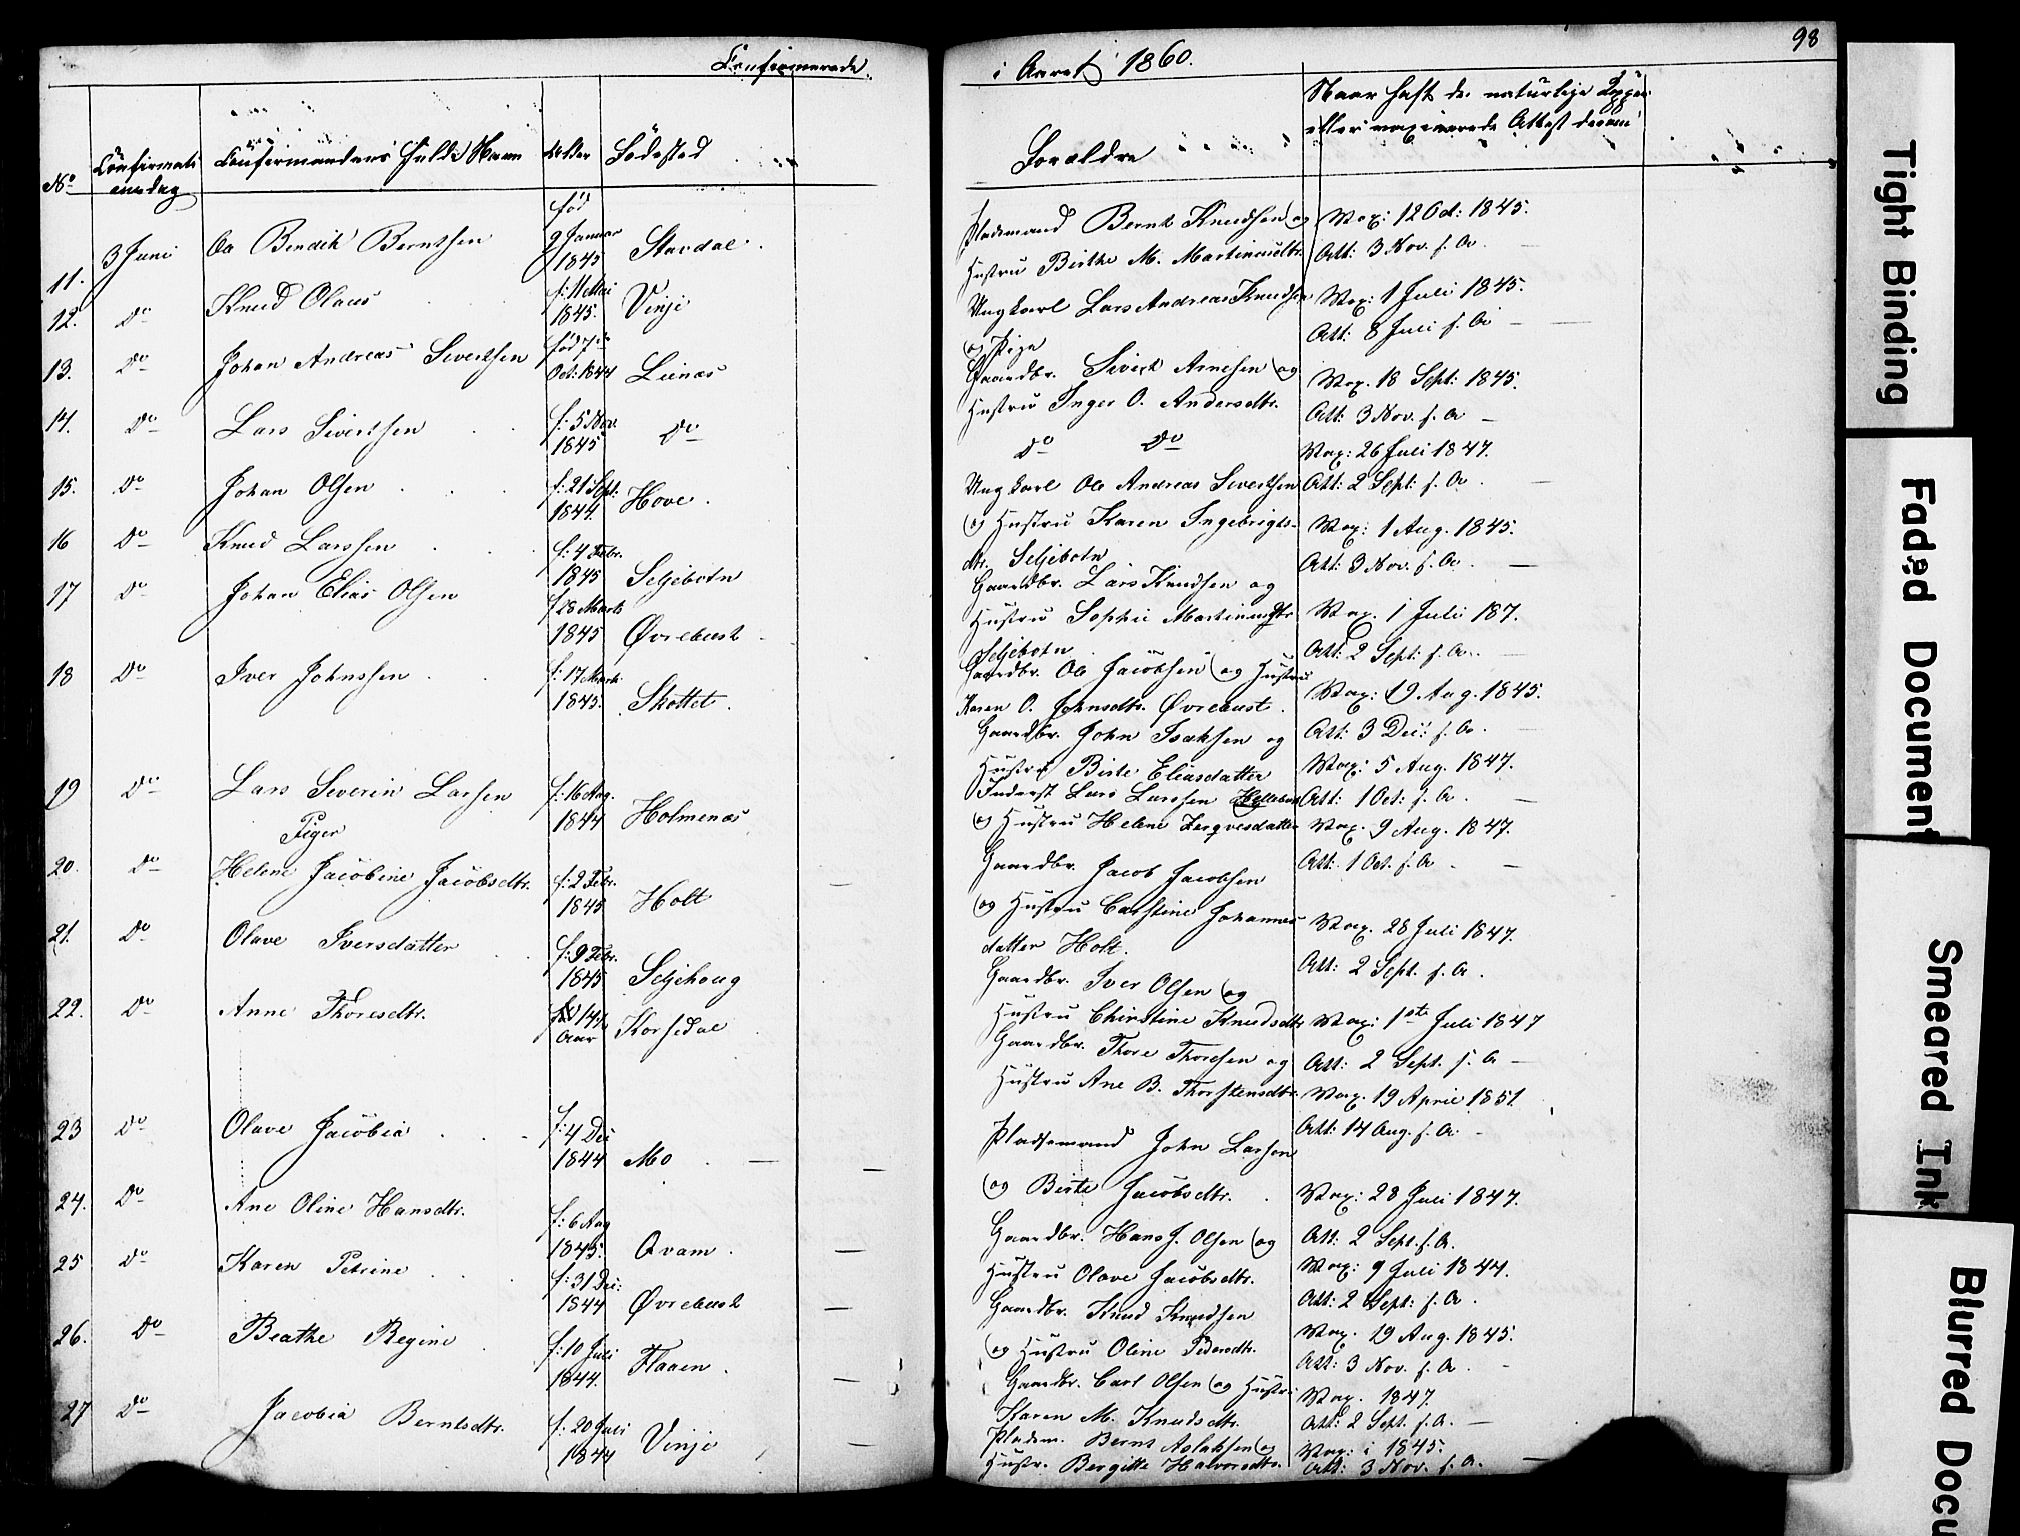 Confirmerede
No
Confirmations dag
Confirmandens fulde Navn
Alder
Födested
11. 3 Juni Ole Bendik Berntsen född 9 Januar 1845 Stavdal.
12. Do Knud Olaus f: 11 Mai 1845. Vinje
13. Do Johan Andreas Sivertsen född 7de Oct: 1844 Liences
14. Do Lars Sivertsen f: 5 Nov. 1845 Do
15. Do Johan Olsen f: 21 Sept. 1844. Hove.
16 Do Knud Larssen f: 4 Febr. 1845 Seljebotn
17 Do Johan Elias Olsen f 28 Marts 1845 Øvrebust
18 Do Iver Johnssen f: 17 Marts 1845. Skottet.
19 Do Lars Severin Larsen f: 16 Aug. 1844 Holmenæs
Piger
20. Do Helene Jacobine Jacobsdtr. f: 2 Febr. 1845 Holt
21. Do Olave Iversdatter f: 9 Febr. 1845 Seljehoug
22. Do Anne Thoresdtr. 14½ Aar Korsedal
23 Do Olave Jacobia f: 4 Dec 1844 Mo
24. Do Ane Oline Hansdtr. f: 6 Aug 1845. Qvam.
25 Do Karen Petrine f: 31 Dec: 1844 Øvrebust
26. Do Beathe Regine f: 10 Juli 1844. Flaaen.
27 Do Jacobia Berntsdtr. f: 20 Juli 1844 Vinje
98
i Aaret 1860.
Forældre
Naar haft de naturlige Kopper
eller vaxinerede Attest derom
Pladsmand Bernt Knudsen og
Hustru Birthe M. Martinusdtr.
Vax: 12 Oct: 1845.
Att: 3 Nov. s. A.
Ungkarl Lars Andreas Knudsen
og Pige
Vax: 1 Juli 1845.
Att: 8 Juli s. A
Gaardbr. Sivert Arnesen og
Hustru Inger O. Andersdtr.
Vax. 18 Sept: 1845.
Att: 3 Nov. s. A
Do Do
Vax: 26 Juli 1847.
Att: 2 Sept: s. A.
Ungkarl Ole Andreas Sivertsen
og Hustru Karen Ingebrigts-
dtr. Seljebotn
Vax: 1 Aug. 1845.
Att: 3 Nov. s. A.
Gaardbr. Lars Knudsen og
Hustru Sophie Martinusdtr
Seljebotn
Vax. 1 Juli 187.
Att: 2 Sept: s. A.
Gaardbr. Ole Jacobsen og Hustru
Karen O. Johnsdtr. Øvrebust.
Vax: 19 Aug. 1845.
Att: 3 Dec: s. A.
Gaardbr. John Isaksen og
Hustru Birte Eliasdatter
Vax: 5 Aug. 1847.
Att: 1 Oct: s. A.
Inderst Lars Larssen
og Hustru Helene
Vax. 9 Aug. 1847.
Att: 1 Oct. s. A
Gaardbr. Jacob Jacobsen
og Hustru Carstine Johannes
datter Holt.
Vax. 28 Juli 1847.
Att: 2 Sept. s. A.
Gaardbr. Iver Olsen og
Hustru Christine Knudsdtr
Vax: 1ste Juli 1847
Att: 2 Sept. s. A
Gaardbr. Thore Thoresen og
Hustru Ane B. Thorstensdtr.
Vax. 19 April 1851.
Att: 14 Aug. s. A.
Pladsemand John Larsen
og Birte Jacobsdtr.
Vax: 28 Juli 1847.
Att: 2 Sept. s. A.
Gaardbr. Hans J. Olsen og
Hustru Olave Jacobsdtr.
Vax: 9 Juli 1844.
Att: 2 Sept: s. A.
Gaardbr. Knud Knudsen
og Hustru Oline Pedersdtr.
Vax. 19 Aug. 1845.
Att: 3 Nov. s. A
Gaardbr. Carl Olsen og Hustru
Karen M. Knudsdtr.
Vax. 1847.
Att: 2 Sept. s. A.
Pladsm. Bernt Aslaksen og
Hustr. Bergitte Halvorsdtr.
Vax: i 1845.
Att: 3 Nov. s. A.
Tight Binding
Faded Document
Smeared Ink
Blurred Docu